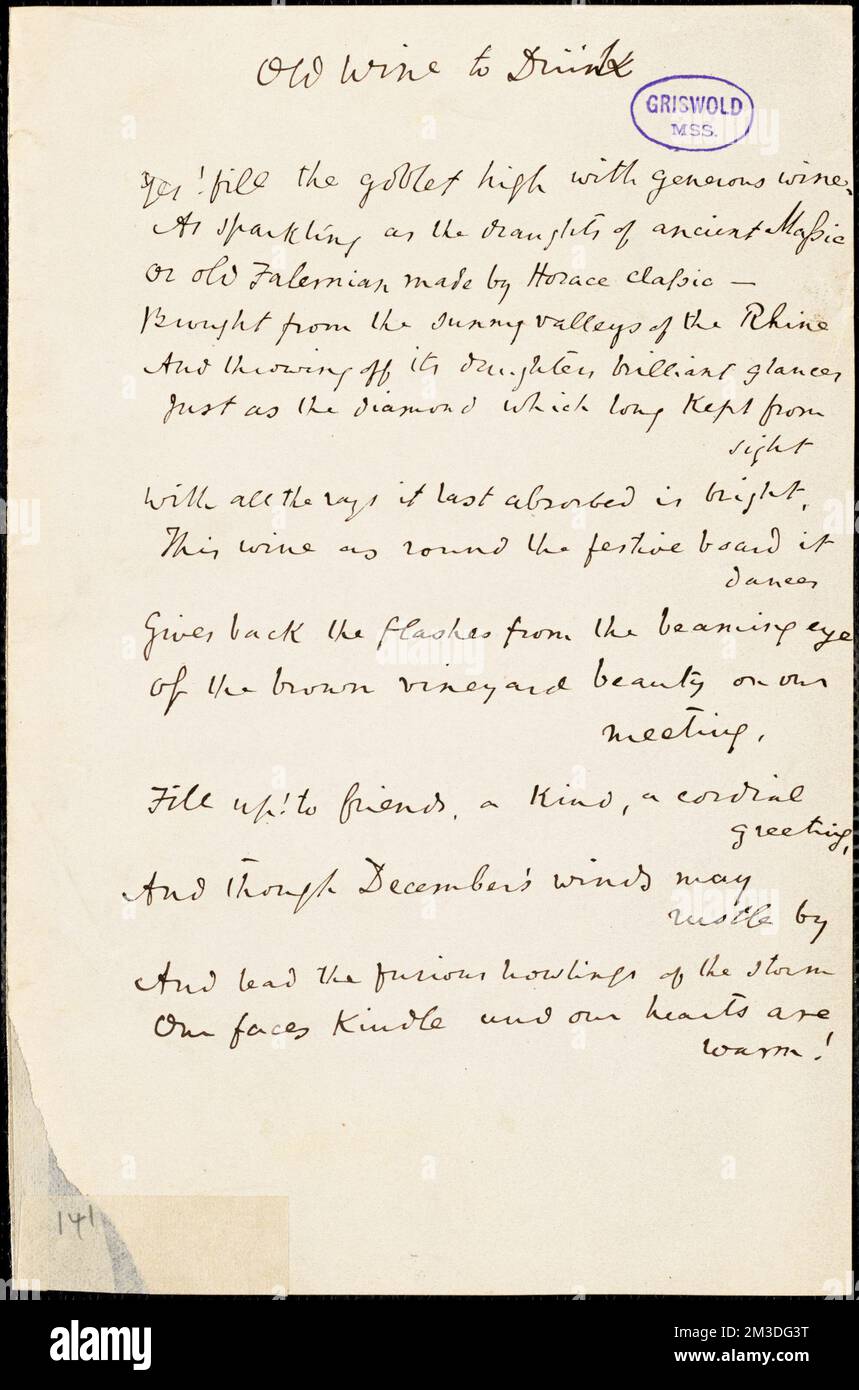 Old Wine to Drink
GRISWOLD
MSS.
Yes! fill the goblet high with generous wine,
As sparkling as the draughts of ancient Maſsic
Or old Falernian made by Horace claſsic —
Brought from the sunny valleys of the Rhine
And throwing off its daughters brilliant glances
Just as the diamond which long kept from
sight
With all the rays it last absorbed is bright,
This wine as round the festive board it
dances
Gives back the flashes from the beaming eye
Of the brown vineyard beauty on our
meeting,
Fill up! to friends, a kind, a cordial
greeting,
And though December's winds may
rustle by
And lead the furious howlings of the storm
Our faces kindle and our hearts are
warm!
141
alamy
Image ID: 2M3DG3T
www.alamy.com